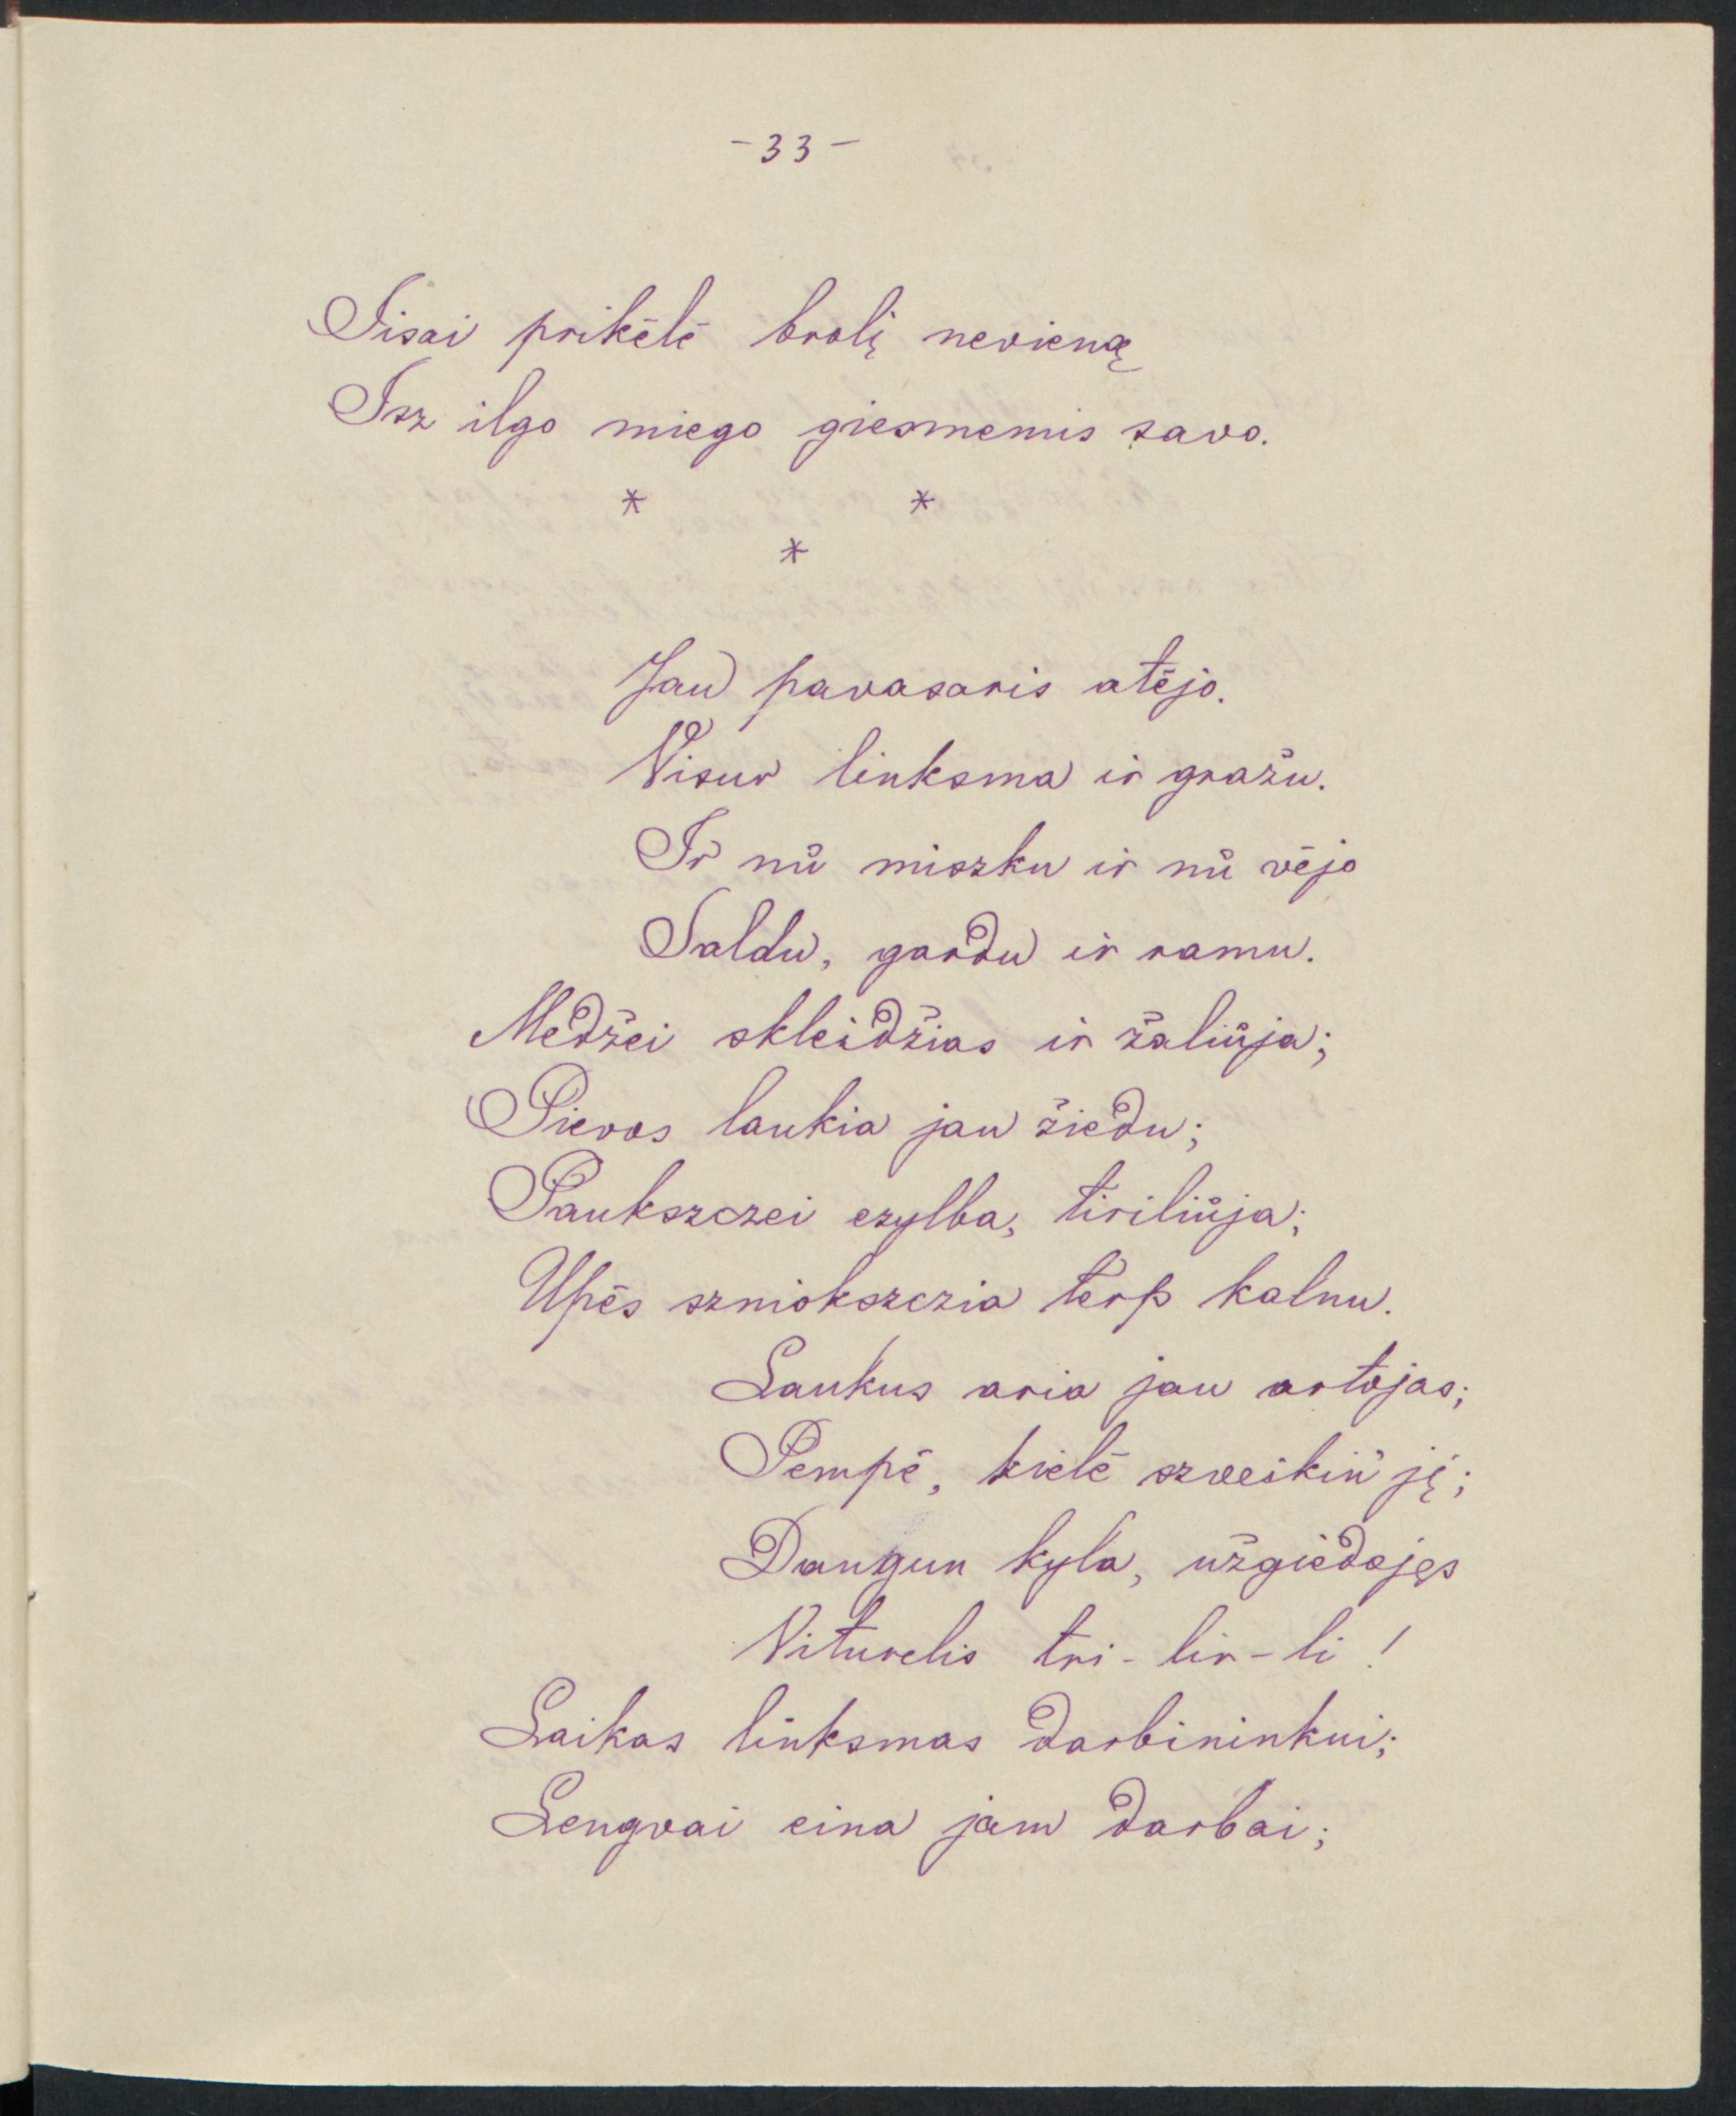 -33-
Jisai prikėlė brolį nevieną
Isz ilgo miego giesmemis savo.
* *
*
Jau pavasaris atėjo.
Visur linksma ir gražu.
Ir nů miszku ir nů vėjo
Saldu, gardu ir ramu.
Medžei skleidžias ir žaliůja;
Pievos laukia jau žiedu;
Paukszczei czylba, tiriliůja;
Upės szniokszczia terp kalnu.
Laukus aria jau artojas;
Pempė, kielė szveikin' jį;
Dangun kyla, užgiedojęs
Viturelis tri-lir-li!
Laikas linksmas darbininkui;
Lengvai eina jam darbai;